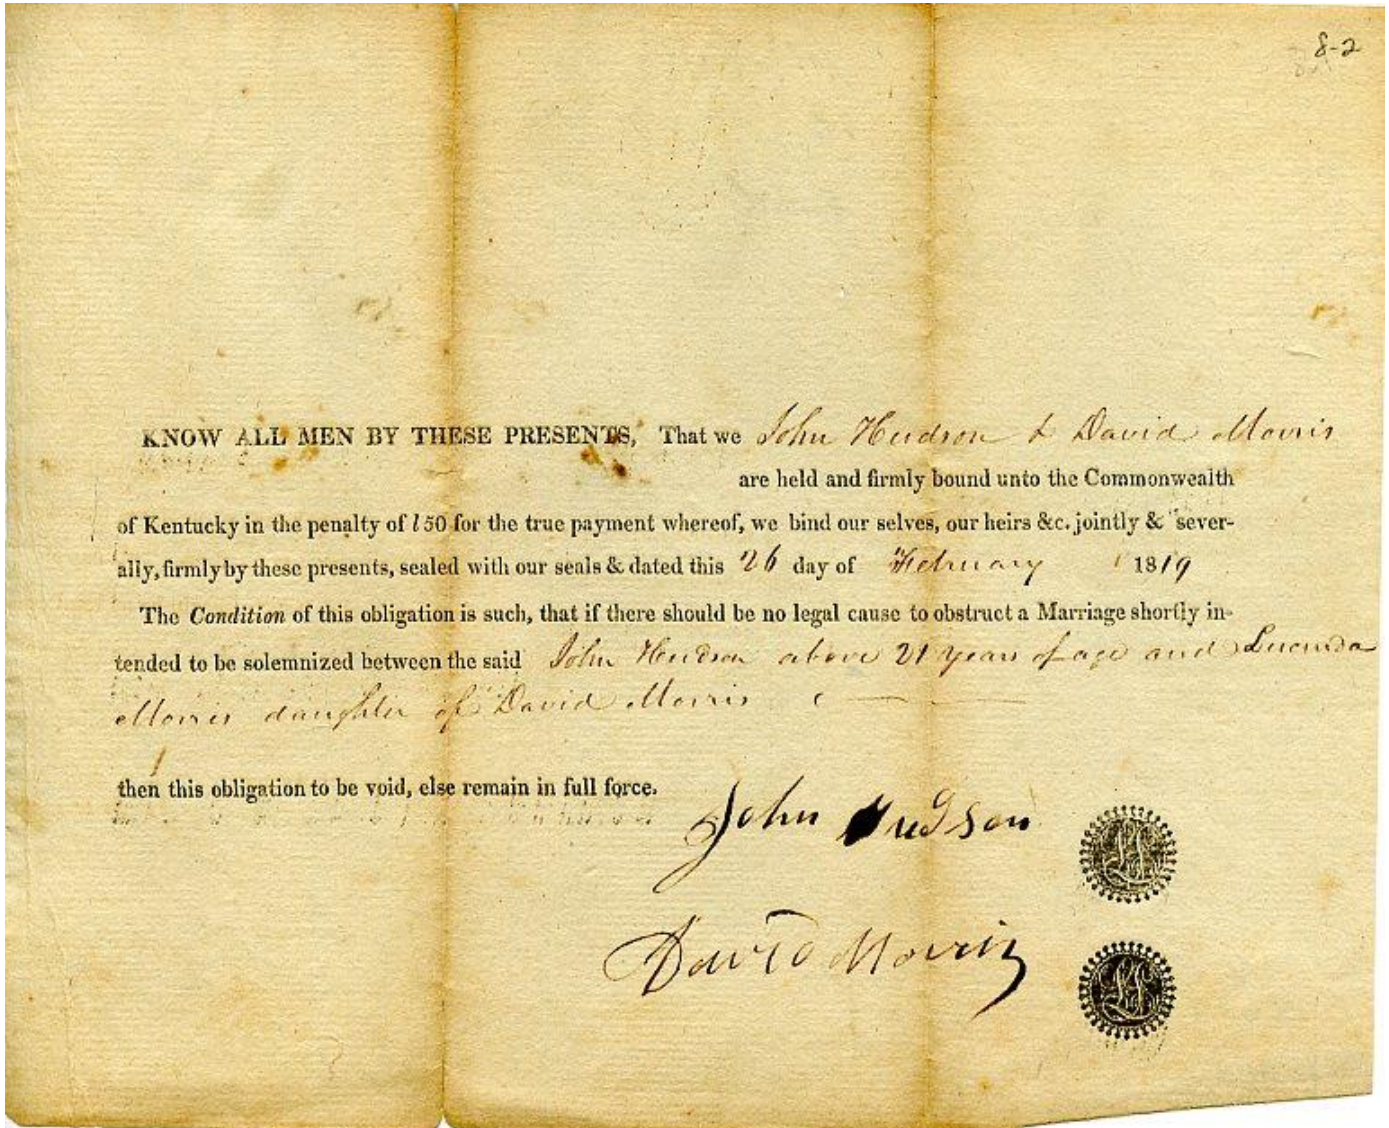 8-2
KNOW ALL MEN BY THESE PRESENTS, That we John Hudson & David Morris
are held and firmly bound unto the Commonwealth
of Kentucky in the penalty of l 50 for the true payment whereof, we bind our selves, our heirs &c. jointly & sever-
ally, firmly by these presents, sealed with our seals & dated this 26 day of February 1819
The Condition of this obligation is such, that if there should be no legal cause to obstruct a Marriage shortly in-
tended to be solemnized between the said John Hudson above 21 years of age and Lucinda
Morris daughter of David Morris
then this obligation to be void, else remain in full force.
John Hudson
David Morris